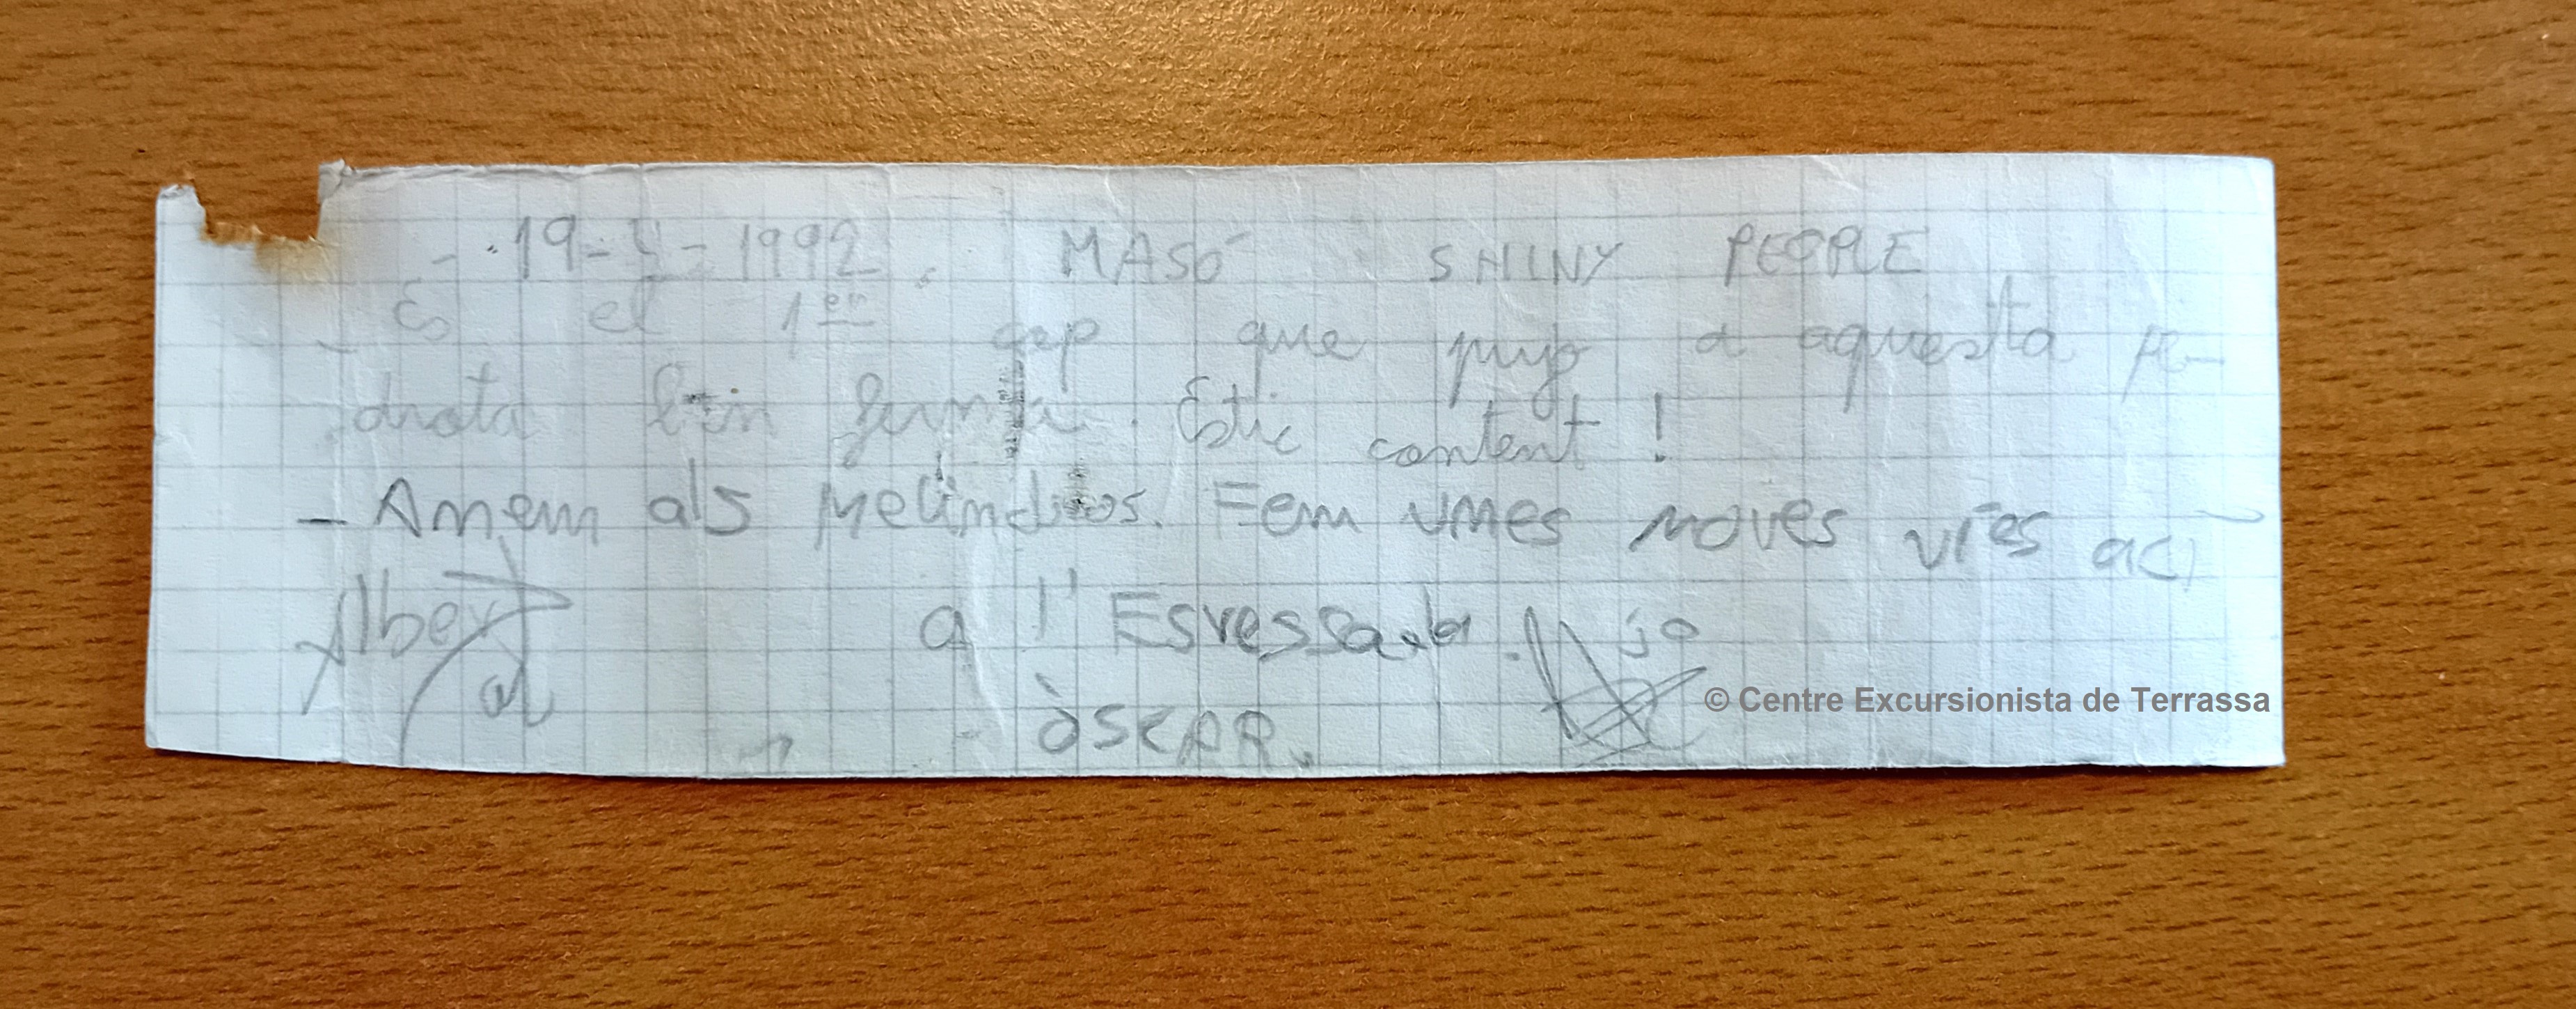 - 19-4-1992. MASÓ SHINY PEOPLE
- És el 1er cop que pujo a aquesta pe-
drota tan guna. Estic content!
- Anem als Melindros. Fem unes noves vies ací
a l'Esvessada. jo
Albert
ÒSCAR.
© Centre Excursionista de Terrassa